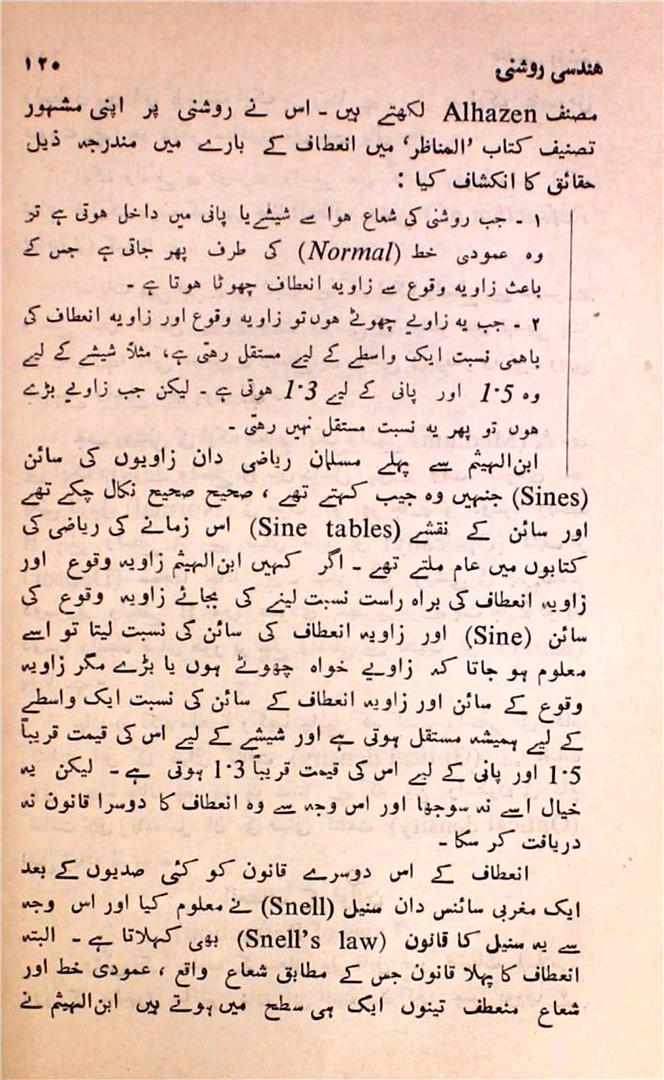 هندسی روشنی ۱۲۰
مصنف Alhazen لکھتے ہیں ۔ اس نے روشنی پر اپنی مشہور
تصنیف کتاب ’المناظر‘ میں انعطاف کے بارے میں مندرجہ ذیل
حقائق کا انکشاف کیا :
۱ ۔ جب روشنی کی شعاع ہوا سے شیشے یا پانی میں داخل ہوتی ہے تو
وہ عمودی خط (Normal) کی طرف پھر جاتی ہے جس کے
باعث زاویہ وقوع سے زاویہ انعطاف چھوٹا ہوتا ہے ۔
۲ ۔ جب یہ زاویے چھوٹے ہوں تو زاویہ وقوع اور زاویہ انعطاف کی
باہمی نسبت ایک واسطے کے لیے مستقل رہتی ہے، مثلاً شیشے کے لیے
وہ 1·5 اور پانی کے لیے 1·3 ہوتی ہے ۔ لیکن جب زاویے بڑے
ہوں تو پھر یہ نسبت مستقل نہیں رہتی ۔
ابن الہیثم سے پہلے مسلمان ریاضی دان زاویوں کی سائن
(Sines) جنہیں وہ جیب کہتے تھے ، صحیح صحیح نکال چکے تھے
اور سائن کے نقشے (Sine tables) اس زمانے کی ریاضی کی
کتابوں میں عام ملتے تھے ۔ اگر کہیں ابن الہیثم زاویہ وقوع اور
زاویہ انعطاف کی براہ راست نسبت لینے کی بجائے زاویہ وقوع کی
سائن (Sine) اور زاویہ انعطاف کی سائن کی نسبت لیتا تو اسے
معلوم ہو جاتا کہ زاویے خواہ چھوٹے ہوں یا بڑے مگر زاویہ
وقوع کے سائن اور زاویہ انعطاف کے سائن کی نسبت ایک واسطے
کے لیے ہمیشہ مستقل ہوتی ہے اور شیشے کے لیے اس کی قیمت قریباً
1·5 اور پانی کے لیے اس کی قیمت قریباً 1·3 ہوتی ہے ۔ لیکن یہ
خیال اسے نہ سوجھا اور اس وجہ سے وہ انعطاف کا دوسرا قانون نہ
دریافت کر سکا ۔
انعطاف کے اس دوسرے قانون کو کئی صدیوں کے بعد
ایک مغربی سائنس دان سنیل (Snell) نے معلوم کیا اور اس وجہ
سے یہ سنیل کا قانون (Snell’s law) بھی کہلاتا ہے ۔ البتہ
انعطاف کا پہلا قانون جس کے مطابق شعاع واقع ، عمودی خط اور
شعاع منعطف تینوں ایک ہی سطح میں ہوتے ہیں ابن الہیثم نے